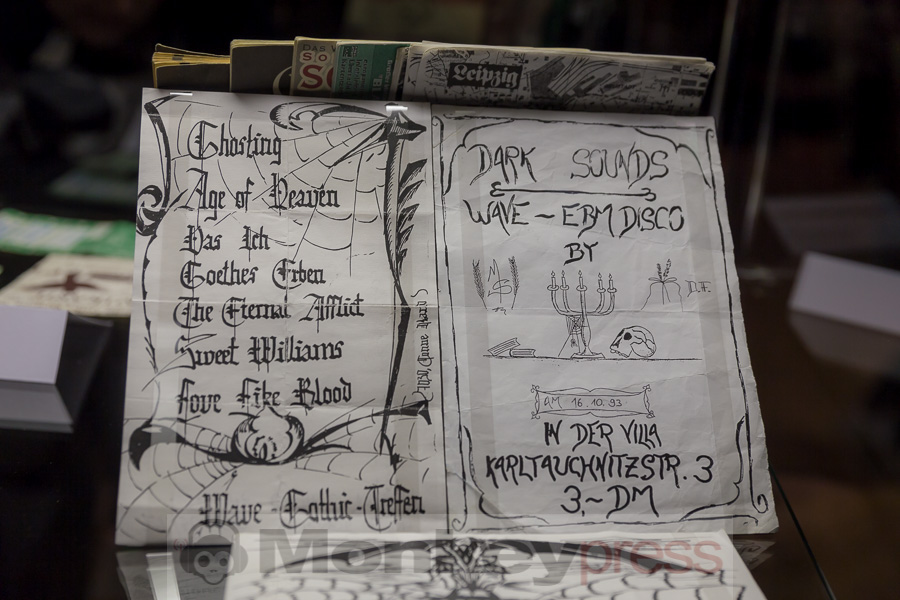 DAS
SO
Leipzig
Ghosting
Age of Heaven
Das Ich
Goethes Erben
The Eternal Afflict
Sweet Williams
Love Like Blood
Wave-Gothic-Treffen
DARK SOUNDS
WAVE ~ EBM DISCO
BY
D.F.
AM 16.10.93
IN DER VILLA
KARLTAUCHNITZSTR. 3
3,- DM
Monkeypress